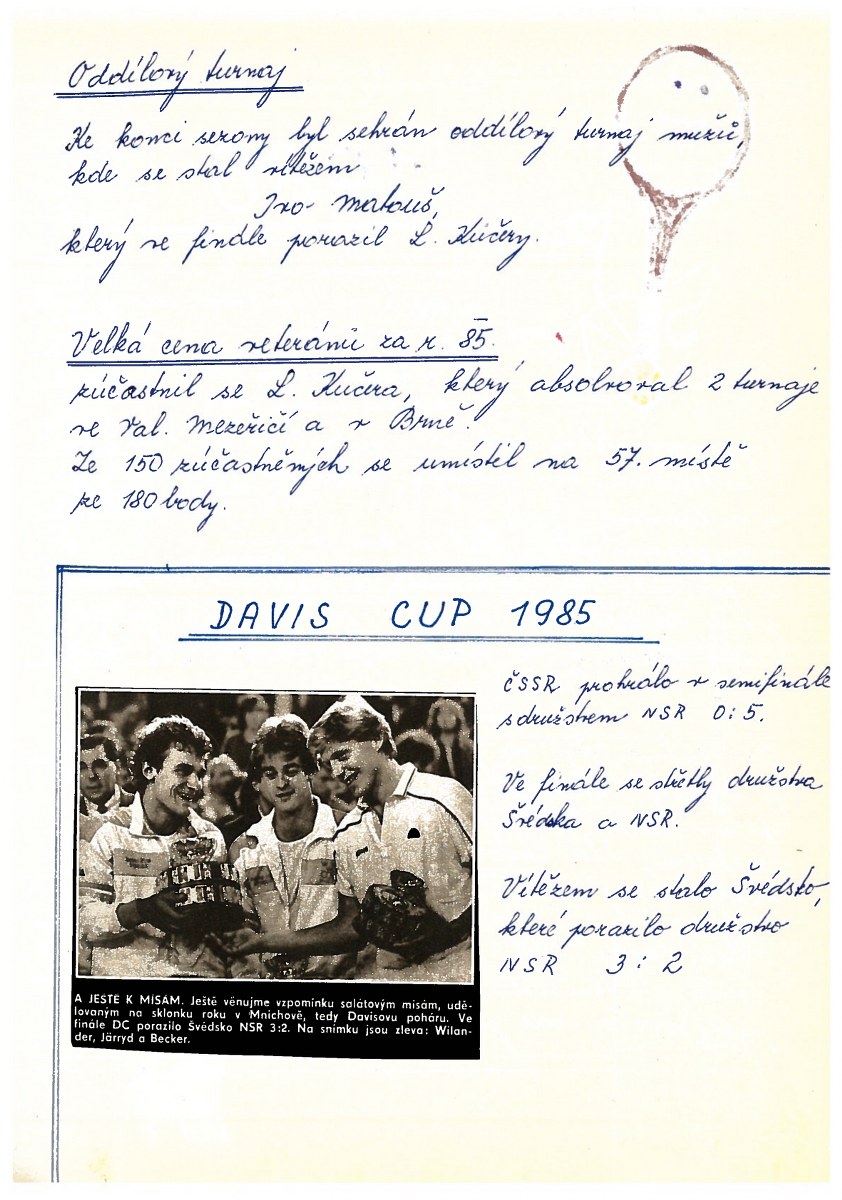 Oddílový turnaj
Ke konci sezony byl sehrán oddílový turnaj mužů,
kde se stal vítězem
Ivo Matouš,
který ve finále porazil L. Kučery.
Velká cena veteránů za r. 85.
zúčastnil se L. Kučera, který absolvoval 2 turnaje
ve Val. Mezeřičí a v Brně.
Ze 150 zúčastněných se umístil na 57. místě
ze 180 body.
DAVIS CUP 1985
ČSSR prohrálo v semifinále
s družstvem NSR 0:5.
Ve finále se střetly družstva
Švédska a NSR.
Vítězem se stalo Švédsko,
které porazilo družstvo
NSR 3:2
A JEŠTĚ K MÍSÁM. Ještě věnujme vzpomínku salátovým mísám, udě-
lovaným na sklonku roku v Mnichově, tedy Davisovu poháru. Ve
finále DC porazilo Švédsko NSR 3:2. Na snímku jsou zleva: Wilan-
der, Järryd a Becker.